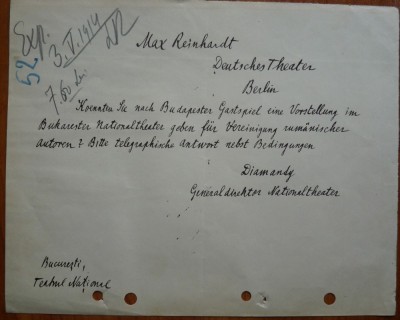 Exp.
3.V.1914
52
7.60 Lei
Max Reinhardt
Deutsches Theater
Berlin
Koennten Sie nach Budapester Gastspiel eine Vorstellung im
Bukarester Nationaltheater geben für Vereinigung rumänischer
autoren? Bitte telegraphische Antwort nebst Bedingungen
Diamandy
Generaldirektor Nationaltheater
București,
Teatrul Național